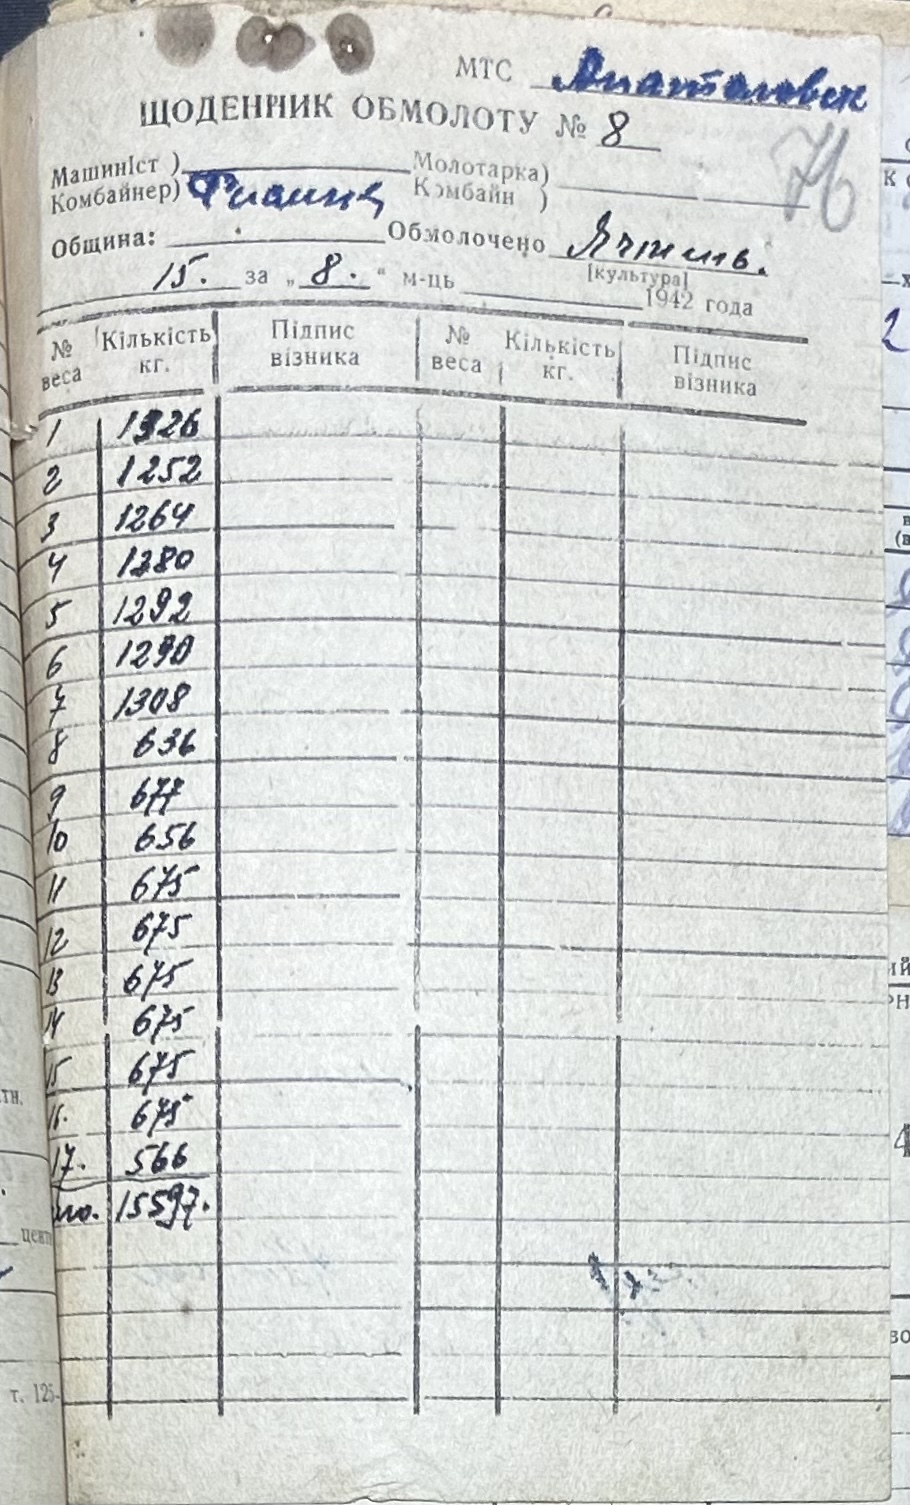 МТС
ЩОДЕННИК ОБМОЛОТУ № 8
76
Машиніст ) Молотарка)
Комбайнер) Комбайн )
Община: Обмолочено Ячмень.
[культура]
15. за „ 8. “ м-ць 1942 года
№ веса Кількість кг. Підпис візника № веса Кількість кг. Підпис візника
1 1326
2 1252
3 1264
4 1280
5 1292
6 1290
7 1308
8 636
9 677
10 656
11 675
12 675
13 675
14 675
15 675
16. 675
17. 566
15597.